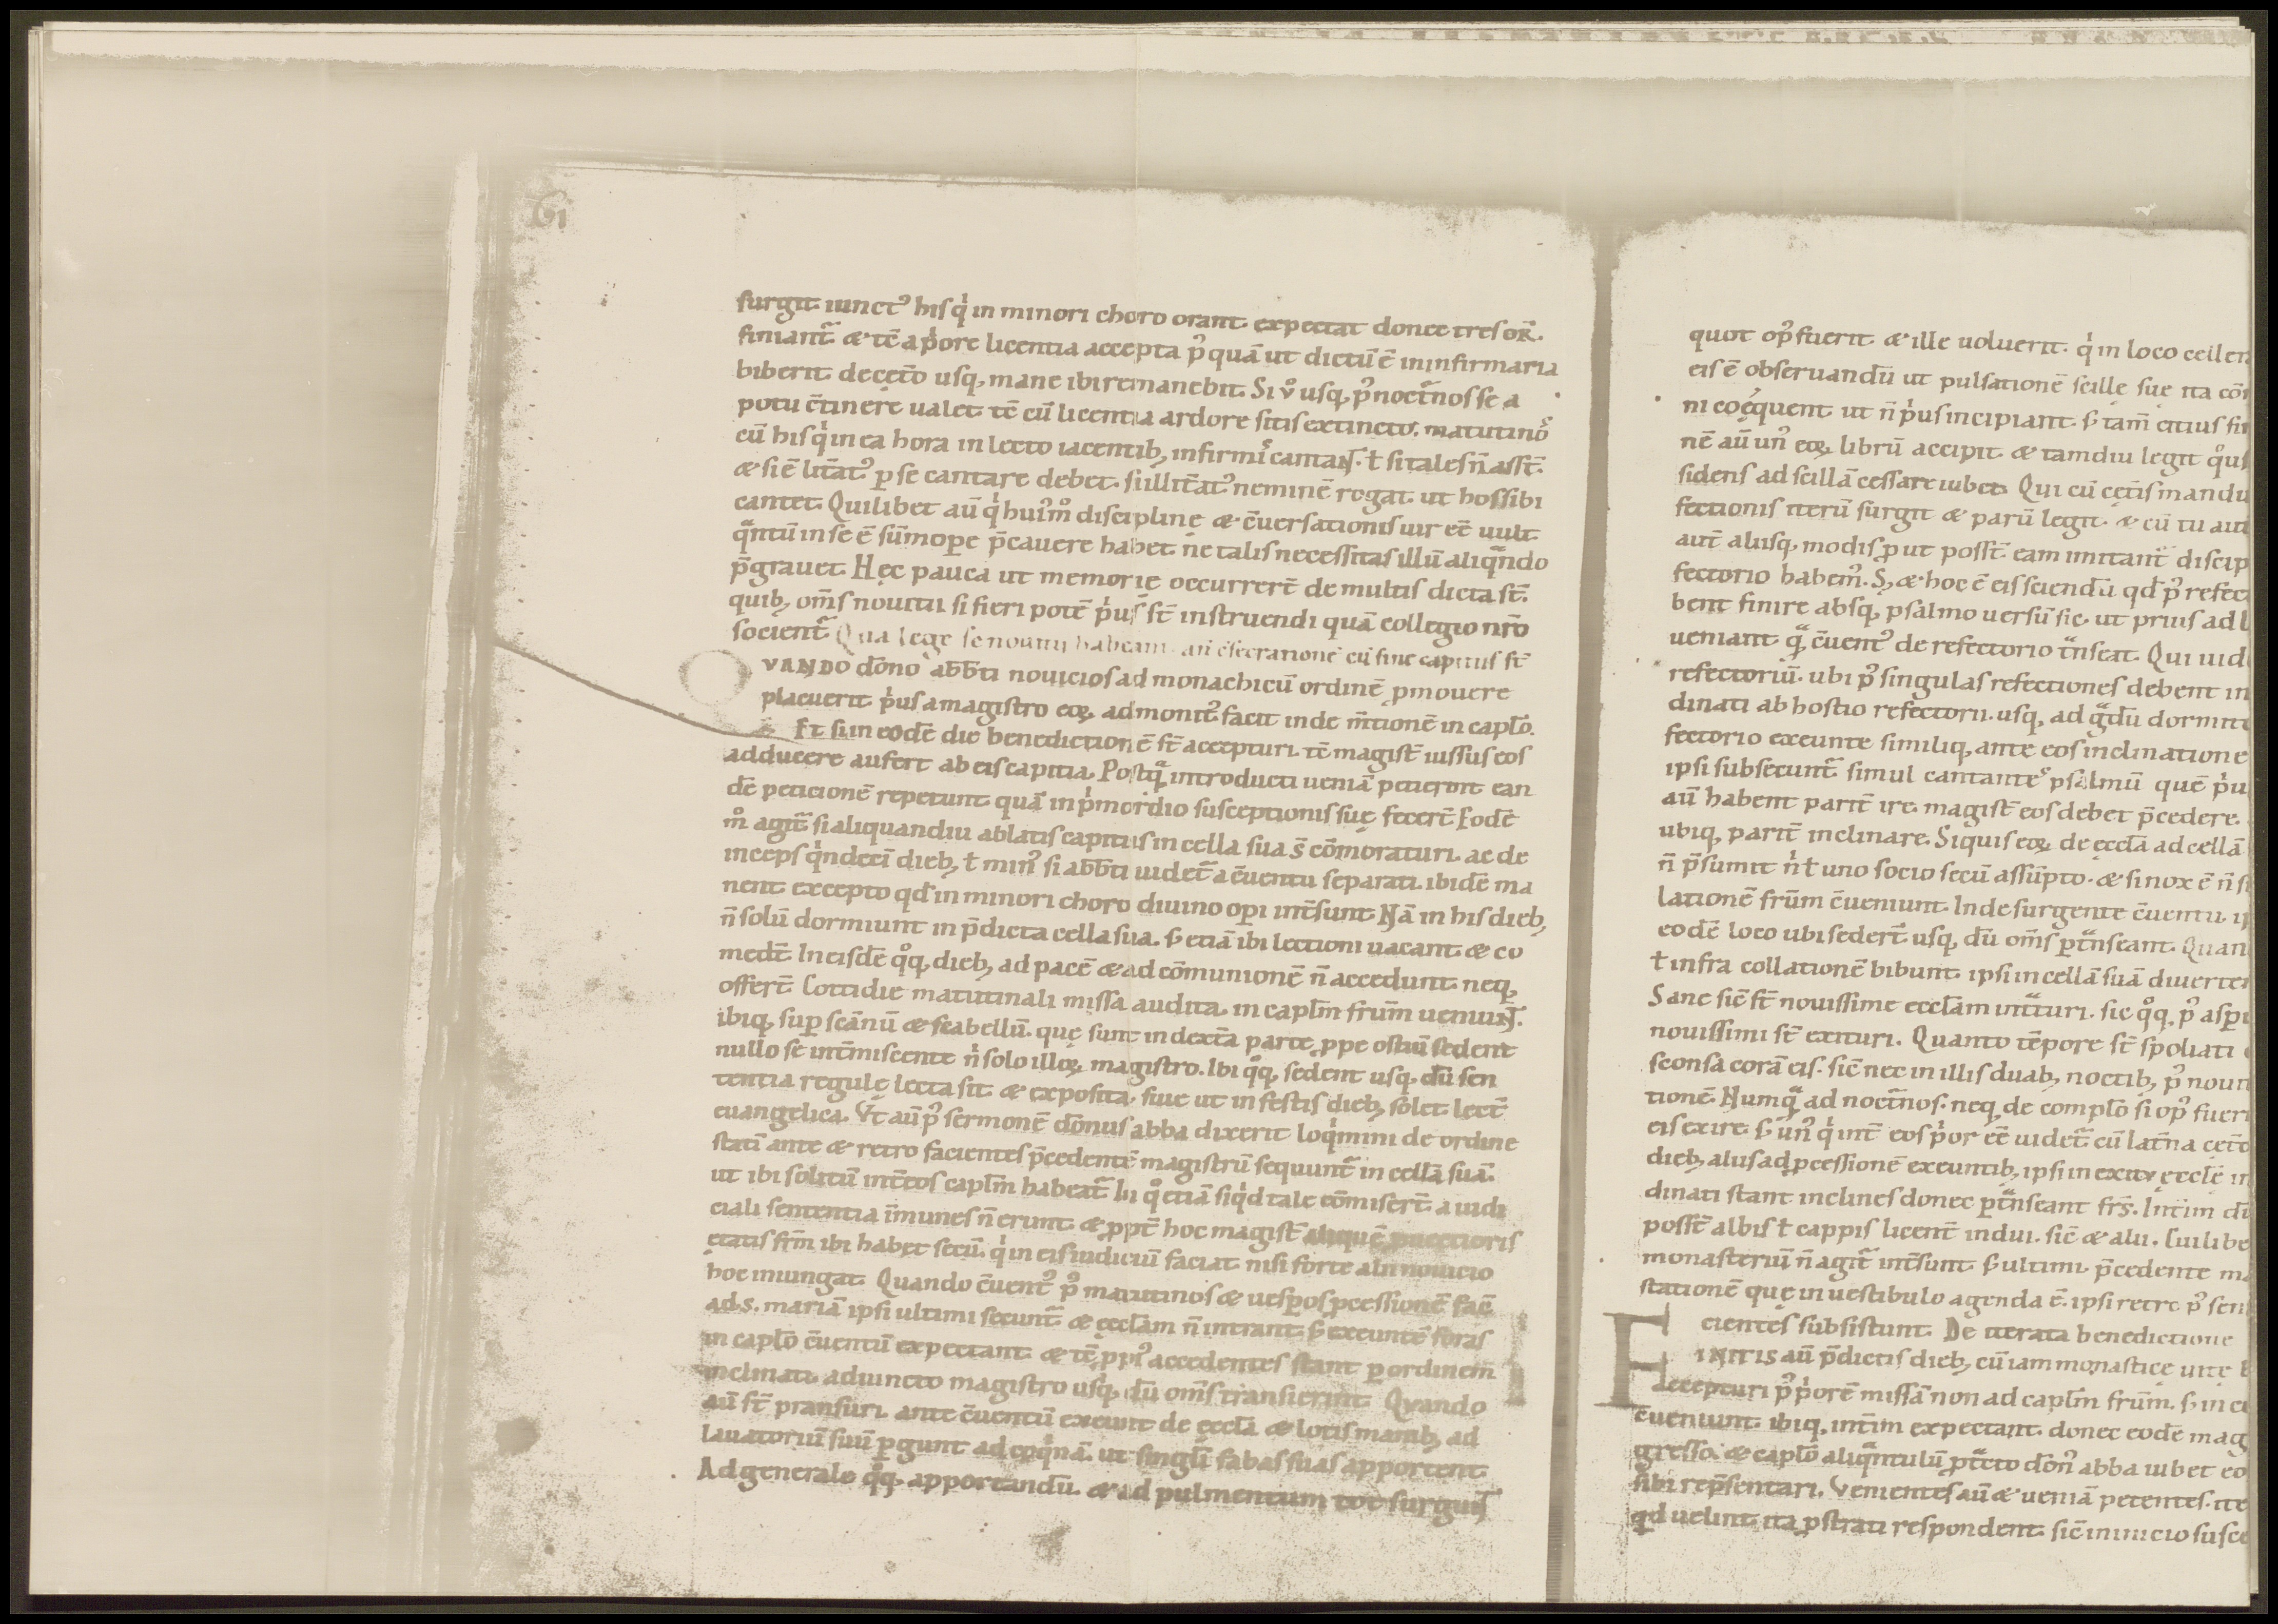 61
surgit iunct᾽ his q̍ in minori choro orant. expectat donec tres or̄.
finiant᷑ & tc̄ a p̍ore licentia accepta p᾽quā ut dictū ē in infirmaria
biberit. de cet̄o usq, mane ibi remanebit. Si v̊ usq, p᾽ noct᷑nos se a
potu c̄tinere ualet. tc̄ cū licentia ardore sitis extincto. matutinos
cū his q̍ in ea hora in lecto iacentib, infirmi cantant. ł si tales n̄ asst̄.
& si ē litt̄at᾽ p se cantare debet. si illitt̄at᾽ neminē rogat. ut hos sibi
cantet. Quilibet aū q̍ hui᾽m̊ disciplinę & c̄uersationis uir ēē uult.
q᷑ntū in se ē sūmope p̄cauere habet ne talis necessitas illū aliq᷑ndo
p̄grauet. Hęc pauca ut memorię occurrer̄t de multis dicta st̄.
quib, om̄s nouitii si fieri potē p̍us st̄ instruendi quā collegio nr̄o
socient᷑. Qua lege se nouitii habeant
QVANDO dōno abb̄ti nouicios ad monachicū ordinē pmouere
placuerit p̍us a magistro eoꝝ admonit᾽ facit inde m̄tionē in capl̄o.
Et si in eodē die benedictionē st̄ accepturi. tc̄ magist̄ iussus eos
adducere aufert ab eis capitia. Postq᷑ introducti ueniā petieront ean
dē peticionē repetunt quā in p̍mordio susceptionis suę fecer̄t. Eodē
m̊ agit᷑ si aliquandiu ablatis capitiis in cella sua s̄ cōmoraturi. ac de
inceps q̍ndeci dieb, ł min᾽ si abb̄ti uidet᷑ a c̄uentu separati. ibidē ma
nent. excepto qđ in minori choro diuino opi int̄sunt. Nā in his dieb,
n̄ solū dormiunt in p̄dicta cella sua. s; etiā ibi lectioni uacant. & co
medt̄. In eisdē q̊q, dieb, ad pacē & ad cōmunionē n̄ accedunt. neq,
offert̄. Cottidie matutinali missa audita. in capl̄m fr̄um ueniunt.
ibiq, sup scānū & scabellū. quę sunt in dext̄a parte ppe ostiū sedent
nullo se int̄miscente n̍ solo illoꝝ magistro. Ibi q̊q, sedent usq, dū sen
tentia regulę lecta sit & exposita. siue ut in festis dieb, solet. lect̄
euangelica. Vt aū p᾽ sermonē dōnus abba dixerit loq̍mini de ordine
stati ante & retro facientes p̄cedentē magistrū sequunt᷑ in cellā suā.
ut ibi solitū int̄ eos capl̄m habeat᷑. Hi q̊ etiā siq̍d tale cōmisert̄. a iudi
ciali sententia īmunes n̄ erunt. & ppt̄ hoc magist̄ aliquē puectioris
etatis fr̄m ibi habet secū. q̍ in eis iudiciū faciat. nisi forte alii nouicio
hoc iniungat. Quando c̄uent᾽ p᾽ matutinos & uespos pcessionē fac̄
ad .s. mariā ipsi ultimi secunt᷑ & eccl̄am n̄ intrant. s; exeunte foras
in capl̄o c̄uentū expectant. & tc̄ ppi᾽ accedentes stant p ordinem
inclinati adiuncto magistro usq, dū om̄s transierint. Quando
aū st̄ pransuri. ante c̄uentū exeunt de eccl̄a & lotis manib, ad
lauatoriū suū pgunt ad coq̍nā. ut singl̄i fabas suas apportent.
Ad generale q̊q, apportandū. & ad pulmentum tot surgunt
quot op᾽ fuerit. & ille uoluerit. q̍ in loco celler
eis ē obseruandū ut pulsationē scille sue ita cōi
ni coęquent. ut n̄ p̍us incipiant. s; tam̄ citius fin
nē aū un᾽ eoꝝ librū accipit. & tamdiu legit q̊us
sidens ad scillā cessare iubet. Qui cū cet̄is mandu
fectionis iterū surgit & parū legit. & cū tu aut
aut̄ aliisq, modis put posst̄ eam imitant᷑ discip
fectorio habem᾽. S; & hoc ē eis sciendū qđ p᾽ refec
bent finire absq, psalmo uersū sic. ut prius ad l
ueniant q᷑ c̄uent᾽ de refectorio t᷑nseat. Qui uid
refectoriū. ubi p᾽ singulas refectiones debent in
dinati ab hostio refectorii. usq, ad g᷑dū dormit
fectorio exeunte similiq, ante eos inclinatione
ipsi subsecunt᷑ simul cantantes psalmū quē p̍u
aū habent parit̄ ire. magist̄ eos debet p̄cedere.
ubiq, parit̄ inclinare. Siquis eoꝝ de eccl̄a ad cellā
n̄ p̄sumit n̍ ł uno socio secū assūpto. & si nox ē n̄ si
lationē fr̄um c̄ueniunt. Inde surgente c̄uentu. ip
eodē loco ubi sedert̄ usq, dū om̄s pt᷑nseant. Quan
ł infra collationē bibunt. ipsi in cellā suā diuerter
Sane sic̄ st̄ nouissime eccl̄am int᷑turi. sic q̊q, p᾽ aspi
nouissimi st̄ exituri. Quanto tēpore st̄ spoliati
sconsa corā eis. sic̄ nec in illis duab, noctib, p᾽ noui
tionē. Numq᷑ ad noct᷑nos. neq, de compl̄o si op᾽ fueri
eis exire. s; un᾽ q̍ int̄ eos p̍or ēē uidet᷑ cū lat̄na cet̄o
dieb, aliis ad pcessionē exeuntib, ipsi in exitu ęcclę in
dinati stant inclines donec pt᷑nseant fr̄s. Int̄im dū
posst̄ albis ł cappis licent̄ indui. sic̄ & alii. Cuilibe
monasteriū n̄ agit᷑ int̄sunt. s; ultimi. p̄cedente ma
stationē quę in uestibulo agenda ē. ipsi retro p᾽ sen
cientes subsistunt. De iterata benedictione
FINITIS aū p̄dictis dieb, cū iam monastice uite b
accepturi p᾽ p̍orē missā non ad capl̄m fr̄um. s; in ce
c̄ueniunt. ibiq, int̄im expectant. donec eodē mag
gresso. & capl̄o aliq᷑ntulū pt᷑cto dōn᾽ abba iubet eo
sibi rep̄sentari. Venientes aū & ueniā petentes. ite
qd uelint. ita pstrati respondent. sic̄ in inicio susce